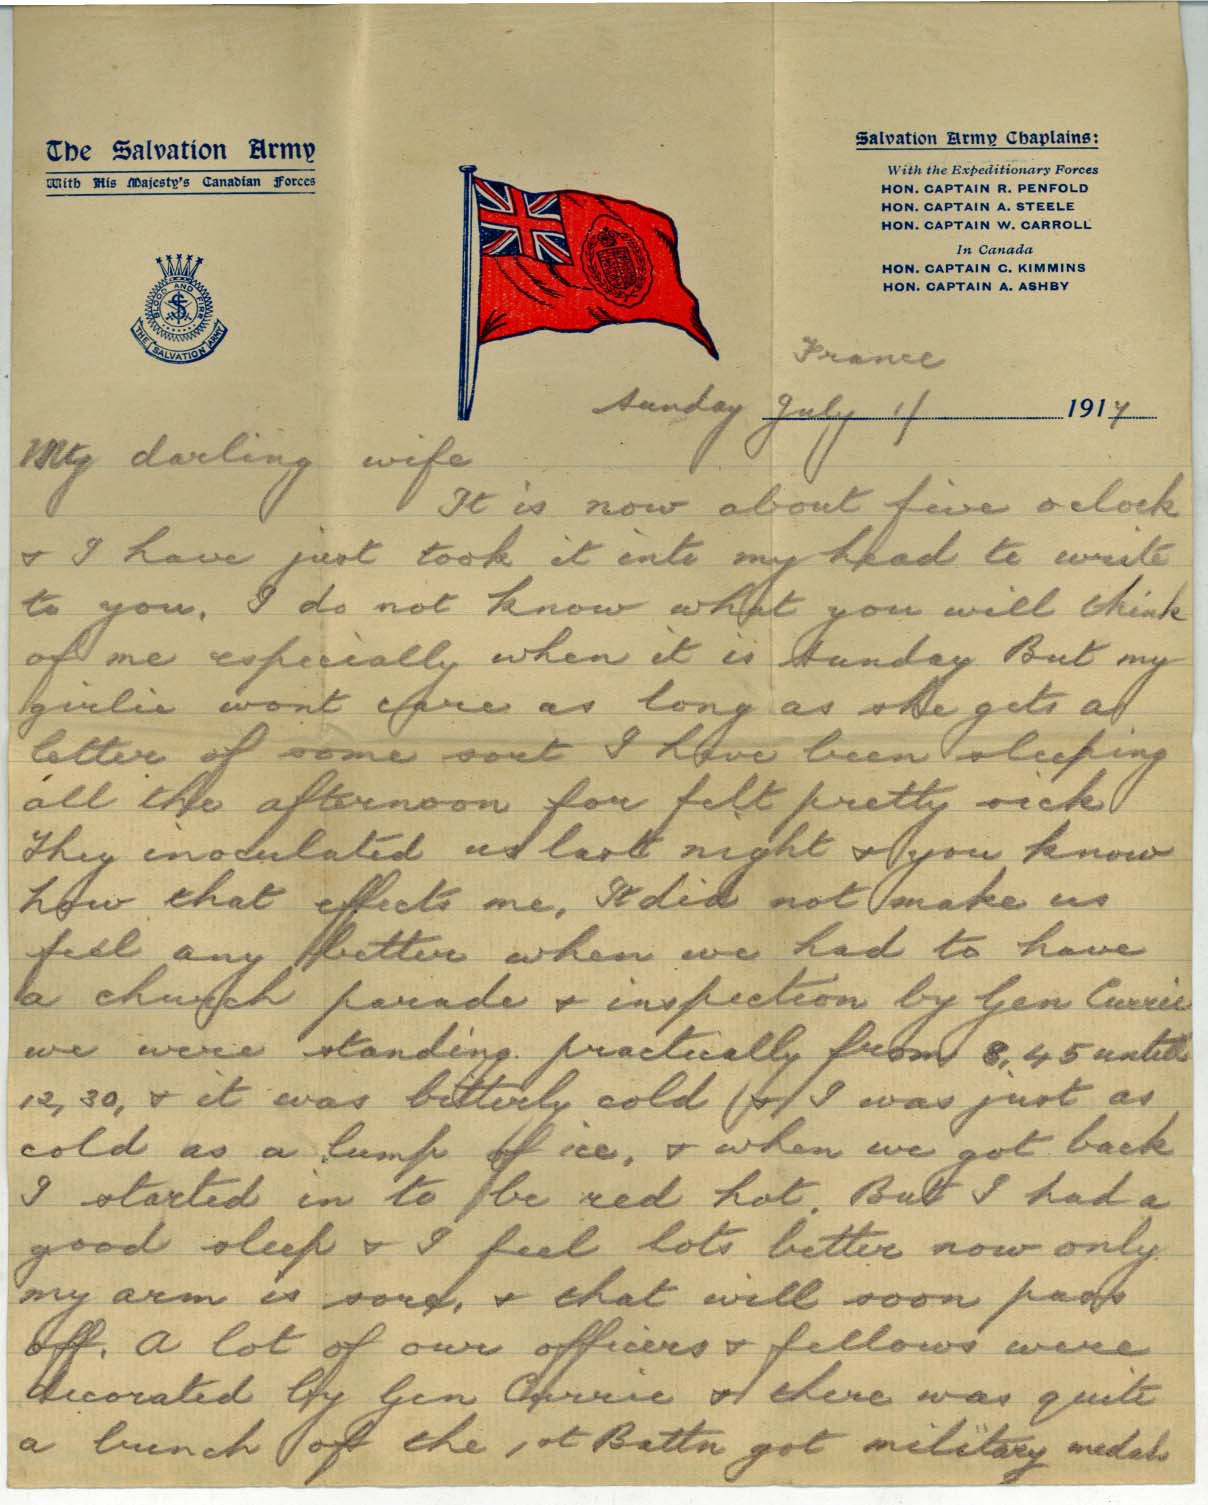 The Salvation Army
With His Majesty's Canadian Forces
BLOOD AND FIRE
THE SALVATION ARMY
Salvation Army Chaplains:
With the Expeditionary Forces
HON. CAPTAIN R. PENFOLD
HON. CAPTAIN A. STEELE
HON. CAPTAIN W. CARROLL
In Canada
HON. CAPTAIN C. KIMMINS
HON. CAPTAIN A. ASHBY
France
Sunday July 1/ 1917
My darling wife
It is now about five oclock
& I have just took it into my head to write
to you. I do not know what you will think
of me especially when it is Sunday But my
girlie wont care as long as she gets a
letter of some sort I have been sleeping
all the afternoon for felt pretty sick
They inoculated us last night & you know
how that effects me. It did not make us
feel any better when we had to have
a church parade & inspection by Gen Currie
we were standing practically from 8,45 until
12,30, & it was bitterly cold & I was just as
cold as a lump of ice, & when we got back
I started in to be red hot. But I had a
good sleep & I feel lots better now only
my arm is sore, & that will soon pass
off. A lot of our officers & fellows were
decorated by Gen Currie & there was quite
a bunch of the 1st Battn got military medals